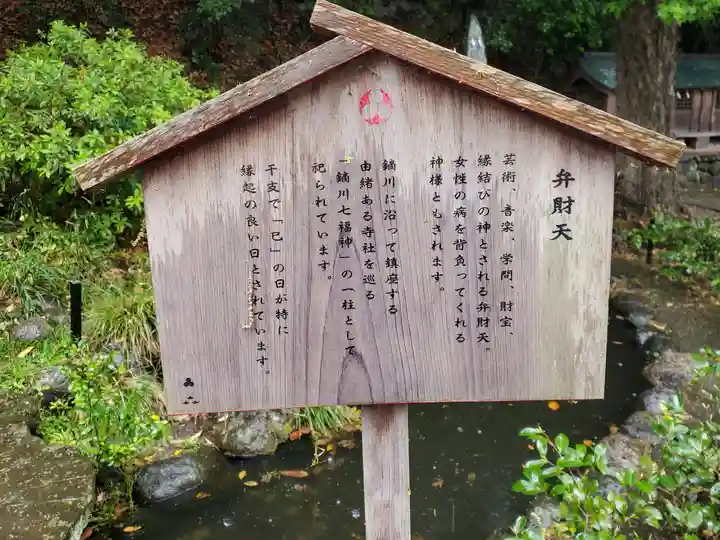 弁財天
芸術、音楽、学問、財宝、
縁結びの神とされる弁財天。
女性の病を背負ってくれる
神様ともされます。
鏑川に沿って鎮座する
由緒ある寺社を巡る
「鏑川七福神」の一柱として
祀られています。
干支で「巳」の日が特に
縁起の良い日とされています。